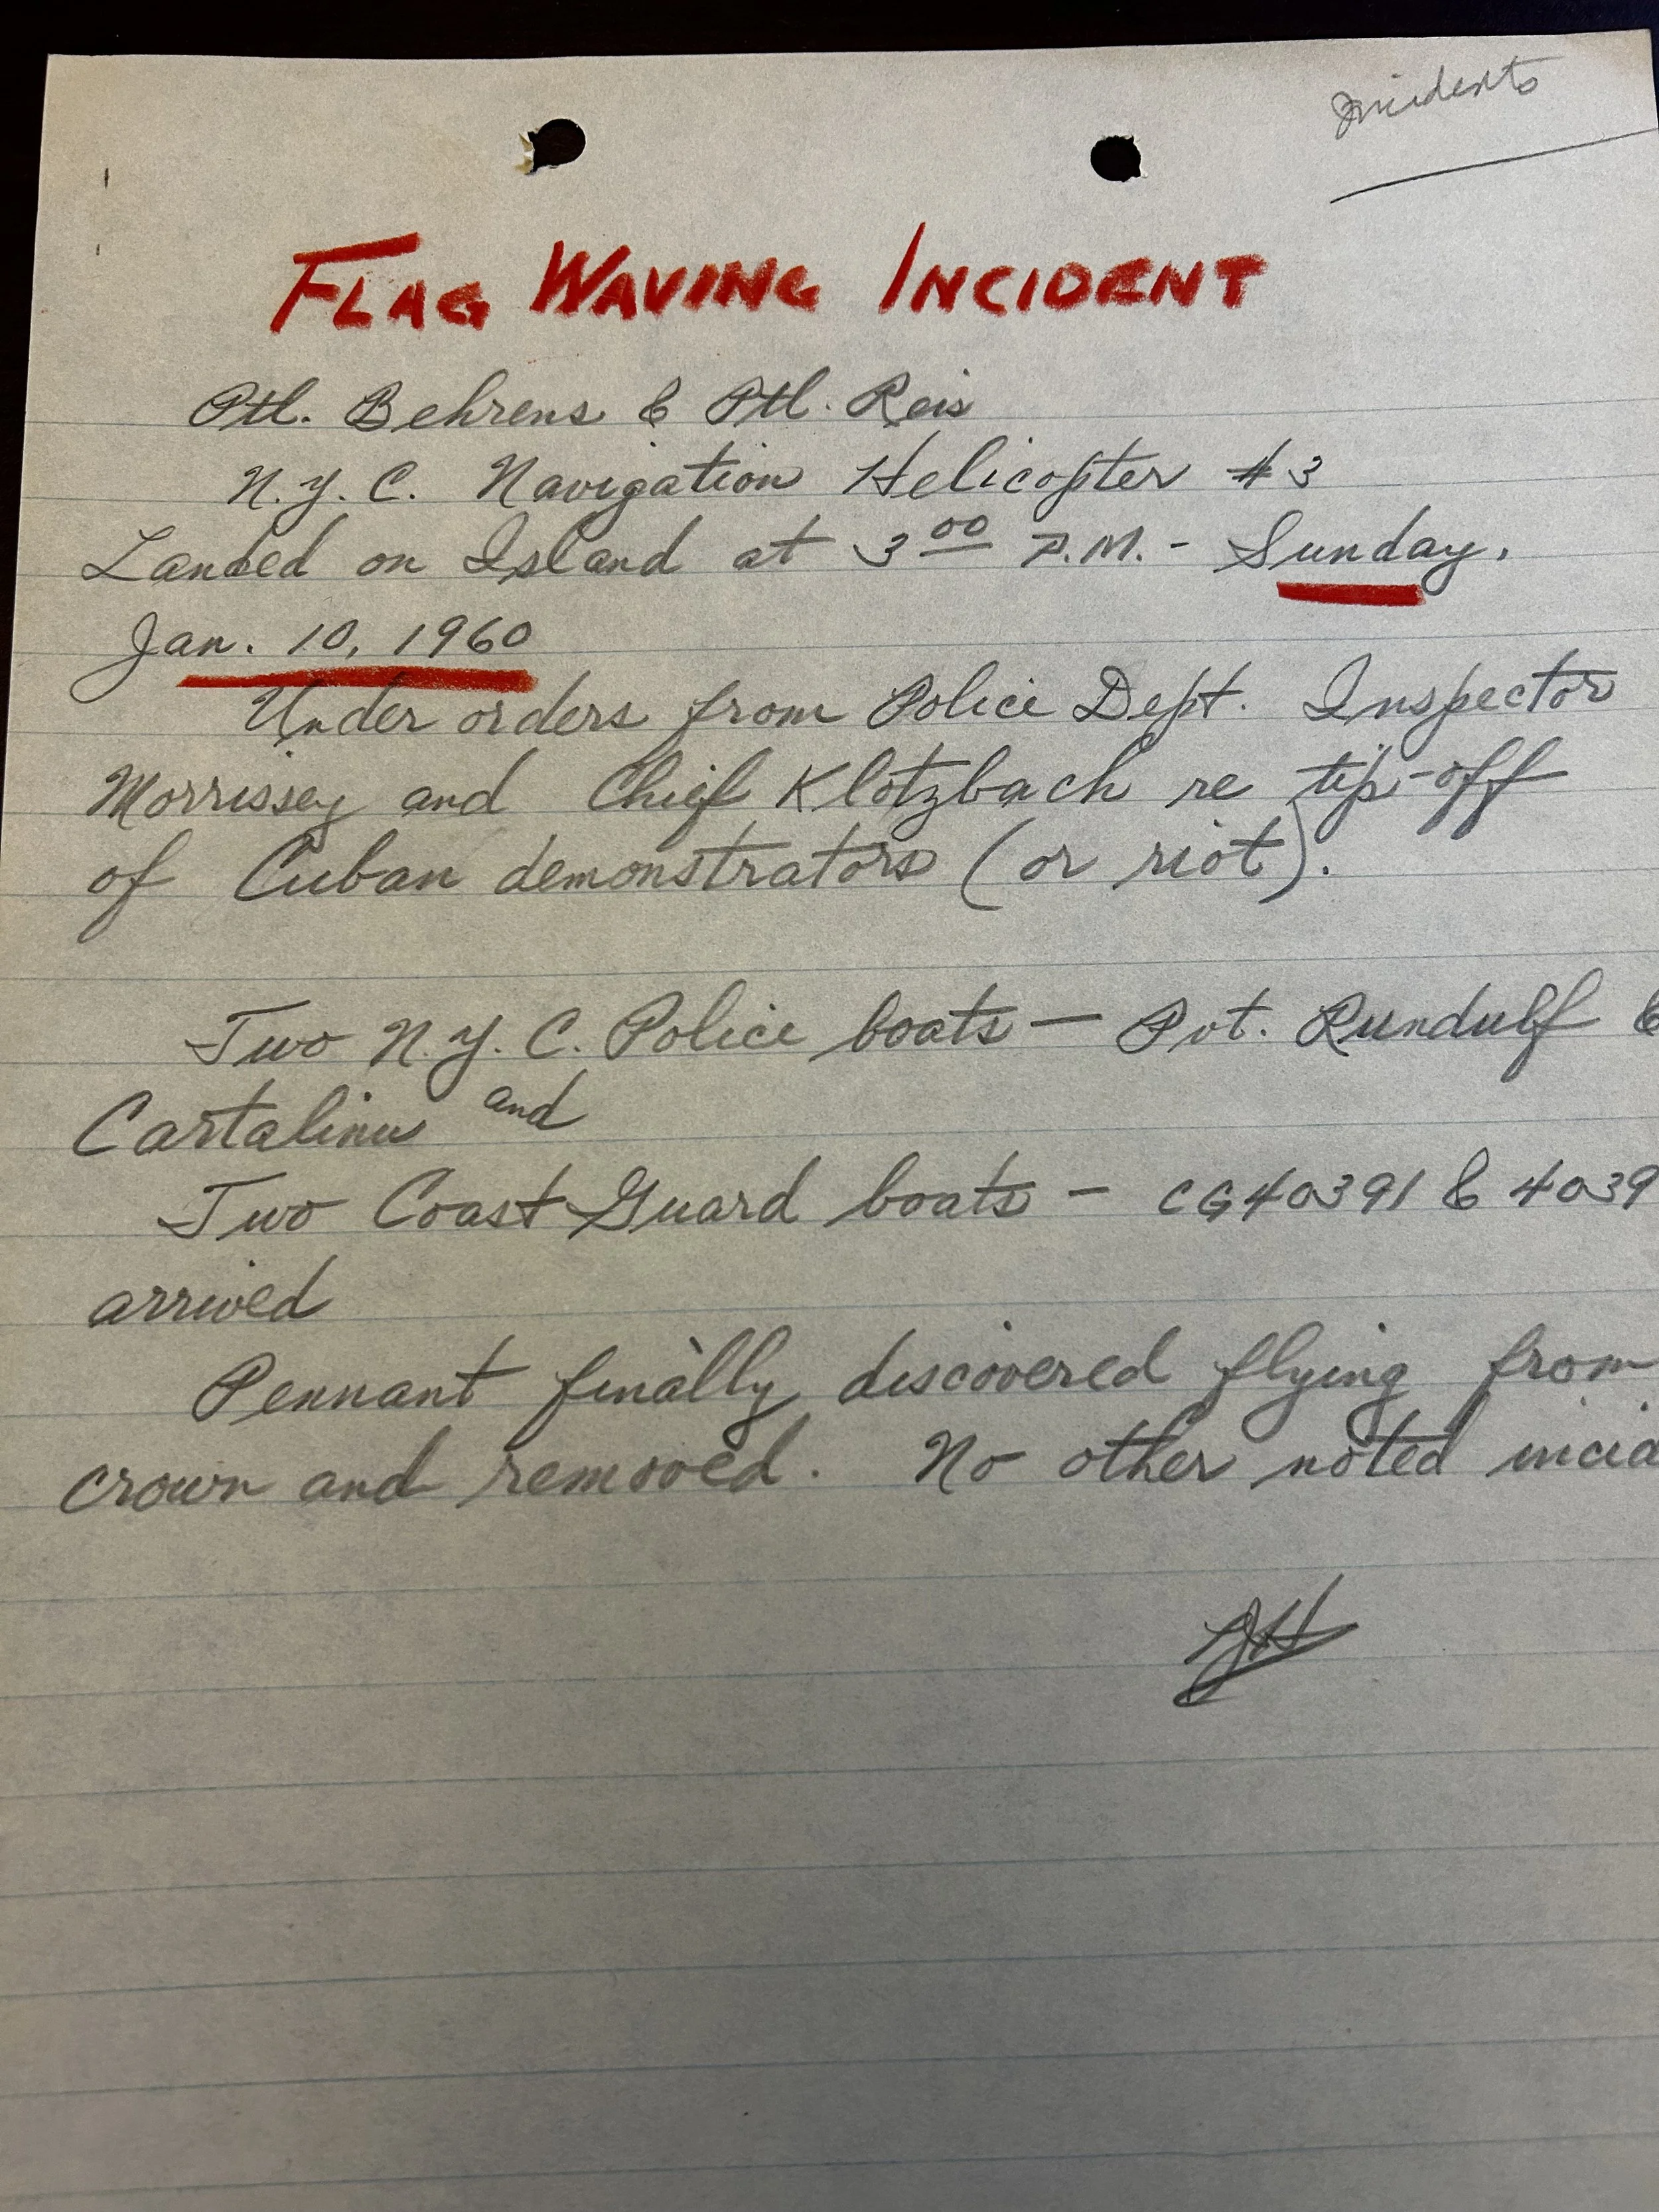 Incidents
FLAG WAVING INCIDENT
Ptl. Behrens & Ptl. Reis
N.Y.C. Navigation Helicopter #3
Landed on Island at 3 00 P.M. - Sunday,
Jan. 10, 1960
Under orders from Police Dept. Inspector
Morrissey and Chief Klotzbach re tip-off
of Cuban demonstrators (or riot).
Two N.Y.C. Police boats — Pvt. Rundulf &
Cartalinu and
Two Coast Guard boats - CG40391 & 4039
arrived
Pennant finally discovered flying from
crown and removed. No other noted incid
JH